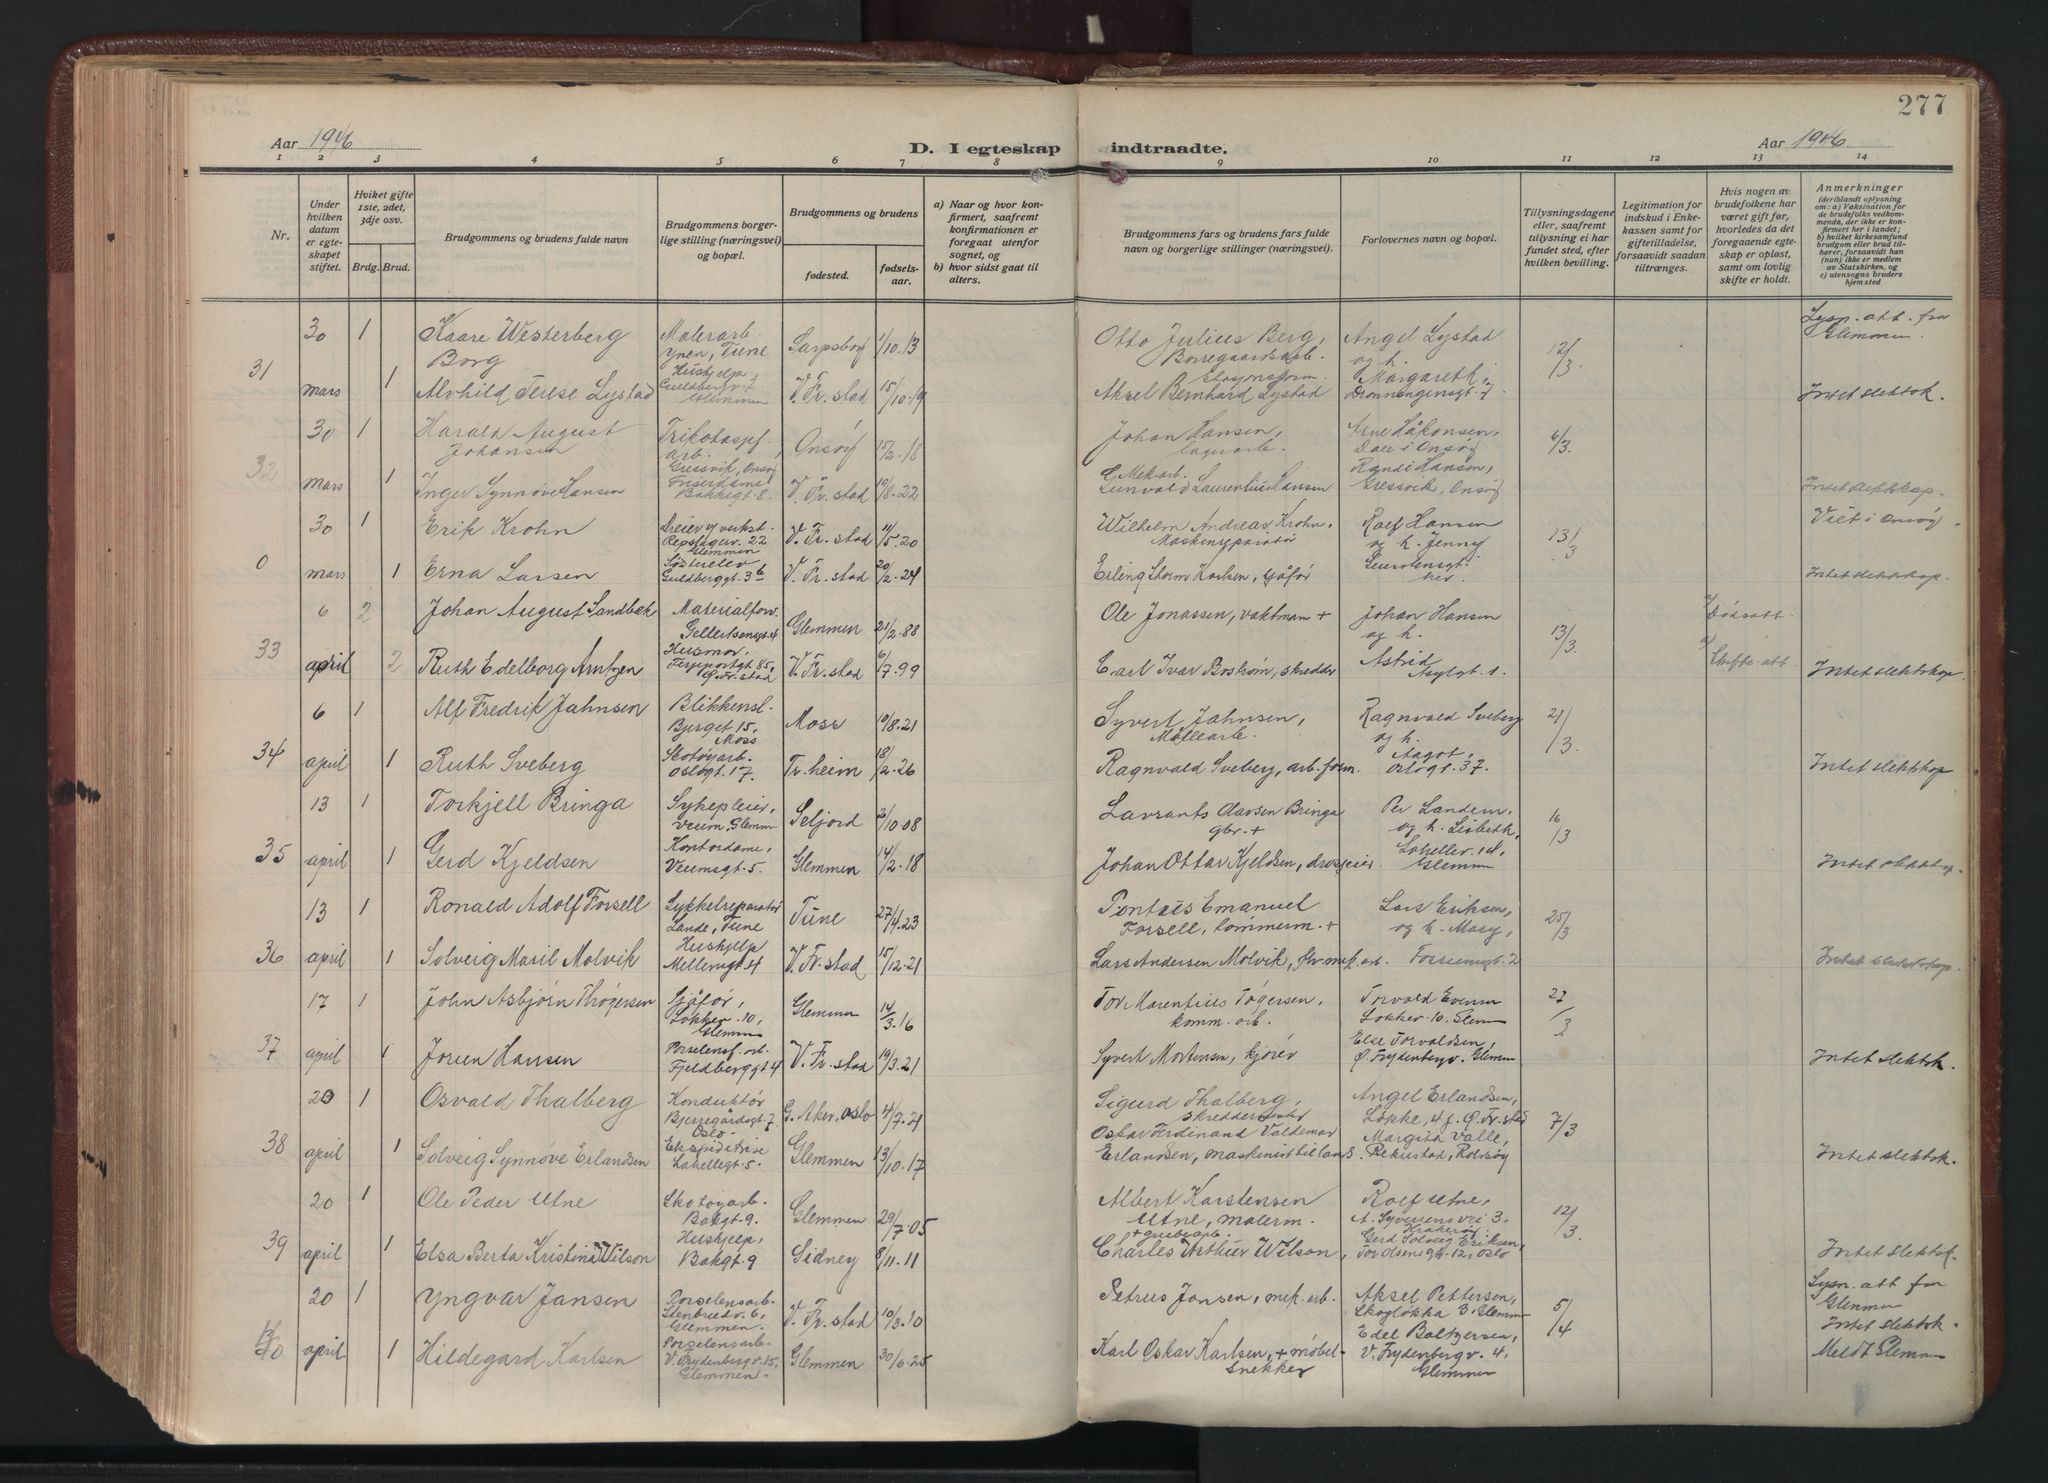 277
Aar 1946 D. I egteskap indtraadte. Aar 1946
1 2 3 4 5 6 7 8 9 10 11 12 13 14
Nr.
Under hvilken datum er egteskapet stiftet.
Hvilket gifte 1ste, 2det, 3dje osv.
Brdg. Brud.
Brudgommens og brudens fulde navn
Brudgommens borgerlige stilling (næringsvei) og bopæl.
Brudgommens og brudens
fødested. fødselsaar.
a) Naar og hvor konfirmert, saafremt konfirmationen er foregaat utenfor sognet, og
b) hvor sidst gaat til alters.
Brudgommens fars og brudens fars fulde navn og borgerlige stillinger (næringsvei).
Forlovernes navn og bopæl.
Tillysningsdagene eller, saafremt tillysning ei har fundet sted, efter hvilken bevilling.
Legitimation for indskud i Enkekassen samt for giftetilladelse, forsaavidt saadan tiltrænges.
Hvis nogen av brudefolkene har været gift før, hvorledes da det foregaaende egteskap er opløst, samt om lovlig skifte er holdt.
Anmerkninger (deriblandt oplysning om: a) Vaksination for de brudefolks vedkommende, der ikke er konfirmert her i landet; b) hvilket kirkesamfund brudgom eller brud tilhører, forsaavidt han (hun) ikke er medlem av Statskirken, og c) utensogns bruders hjemsted
30 1 Kaare Westerberg Borg Malerarb. Ynen, Tune Sarpsborg 1/10.13 Otto Julius Berg, Borregaardsarb. Angel Lystad og h. 12/3 Lysn. att. fra Glemmen
31 mars 1 Alvhild Terese Lystad Hushjelp, Guldbergv. 7 Glemmen V. Fr. stad 15/10.19 Aksel Bernhard Lystad Margareth, Dronningensgt. 7 Intet slektsk.
30 1 Harald August Johansen Trikotasjef. arb. Gressvik, Onsøy Onsøy 15/2.18 Johan Hansen, lagerarb. Arne Håkonsen, Dale i Onsøy 6/3
32 mars 1 Inger Synnøve Hansen Bakkegt. 8. V. Fr. stad 19/8.22 Mek. arb. Gunvald Laurentius Hansen Randi Hansen, Gressvik, Onsøy Intet slektskap. Viet i Onsøy
30 1 Erik Krohn Repslagerv. 22 Glemmen V. Fr. stad 11/5.20 Wilhelm Andreas Krohn, Maskinreparatør Rolf Hansen og h. Jenny 13/3
0 mars 1 Erna Larsen Søsterelev Guldberggt. 3b V. Fr. stad 20/2.24 Erling Storm Larsen, sjåfør her. Intet slektskap
6 2 Johan August Sandbæk Materialforv. Gellertsensgt. 4 Glemmen 21/2.88 Ole Jonassen, vaktman + Johan Hansen og h. 13/3. Dødsatt.
33 april 2 Ruth Edelborg Arntzen Husmor, Ferjeportgt. 85, Ø. Fr. stad V. Fr. stad 6/7.99 Carl Ivar Boström, skredder Astrid Asylgt. 1. Skifte. att. Intet slektskap.
6 1 Alf Fredrik Jahnsen Blikkensl. Bjerget 15, Moss Moss 19/8.21 Syvert Jahnsen, Møllearb. Ragnvald Sveberg og h. 21/3.
34 april 1 Ruth Sveberg Skotøyarb. Oslogt. 17. Tr. heim 18/2.26 Ragnvald Sveberg, arb. form. Aagot, Oslogt. 37. Intet slektskap
13 1 Torkjell Bringa Sykepleier, Veum, Glemm Seljord 2/10.08 Lavrants Aarsen Bringa gbr. + Per Landem, og h. Lisbeth, 16/3
35 april 1 Gerd Kjeldsen Kontordame, Veumsgt. 5. Glemmen 14/2.18 Johan Ottar Kjeldsen, drosjeeier. Lahellev. 14, Glemmen Intet slektskap.
13 1 Ronald Adolf Forsell Sykkelreparatør Lande, Tune Tune 27/4.23 Pontus Emanuel Forsell, tømmerm. + Lars Eriksen, og h. Mary, 25/3
36 april 1 Solveig Maril Molvik Hushjelp Mellemgt. 4 V. Fr. stad 15/12.21 Lars Andersen Molvik, mek. arb. 2 Intet slektskap.
17 1 John Asbjörn Thøgersen Sjåfør, Løkkev. 10, Glemmen Glemmen 14/3.16 Tor Marentius Tøgersen, komm. arb. Torvald Evensen Løkkev. 10. Glemm 27/3
37 april 1 Jorun Hansen Porselensf. arb. Fjeldberggt. 4 V. Fr. stad 19/3.21 Syvert Mortensen, kjører Else Torvaldsen, Ø. Frydenbergv. Glemm Intet slektsk.
20 1 Osvald Thalberg Konduktør Bjerregårdsgt. 7 Oslo. G. Aker, Oslo 4/7.21 Sigurd Thalberg, skreddermester Angel Erlandsen, Løkke, 4 f. Ø. Fr. stad 7/3
38 april 1 Solveig Synnøve Erlandsen Ekspeditrise Lahellegt. 5. Glemmen 13/10.17 Oskar Ferdinand Valdemar Erlandsen, maskinist til lands. Margith Valle, Rekustad, Rolvsøy Intet slektsk.
20 1 Ole Peder Utne Skotøyarb. Bakgt. 9. Glemmen 29/7.05 Albert Karstensen Utne, malerm. Rolf Utne, A. Syversens vei 3. Kråkerøy 12/3
39 april 1 Elsa Berta Kristina Wilson Hushjelp, Bakgt. 9 Sidney 8/11.11 + grubearb. Charles Arthur Wilson, Gerd Solveig Eriksen, Tor Olsens gt. 12, Oslo Intet slektsk.
20 1 Yngvar Jansen Porselensarb. Stenbruddv. 6, Glemmen. V. Fr. stad 19/3.10 Petrus Jansen, mek. arb. Aksel Pettersen, Skogløkka 3, Glemm 5/4 Lysn. att for Glemmen
40 april 1 Hildegard Karlsen Porselensarb. V. Frydenbergv. 15, Glemmen. Glemmen 30/6.25 Karl Oskar Karlsen, + møbelsnekker Edel Baltzersen, V. Frydenbergv. 4, Glemmen Intet slektsk. Meldt Glemmen